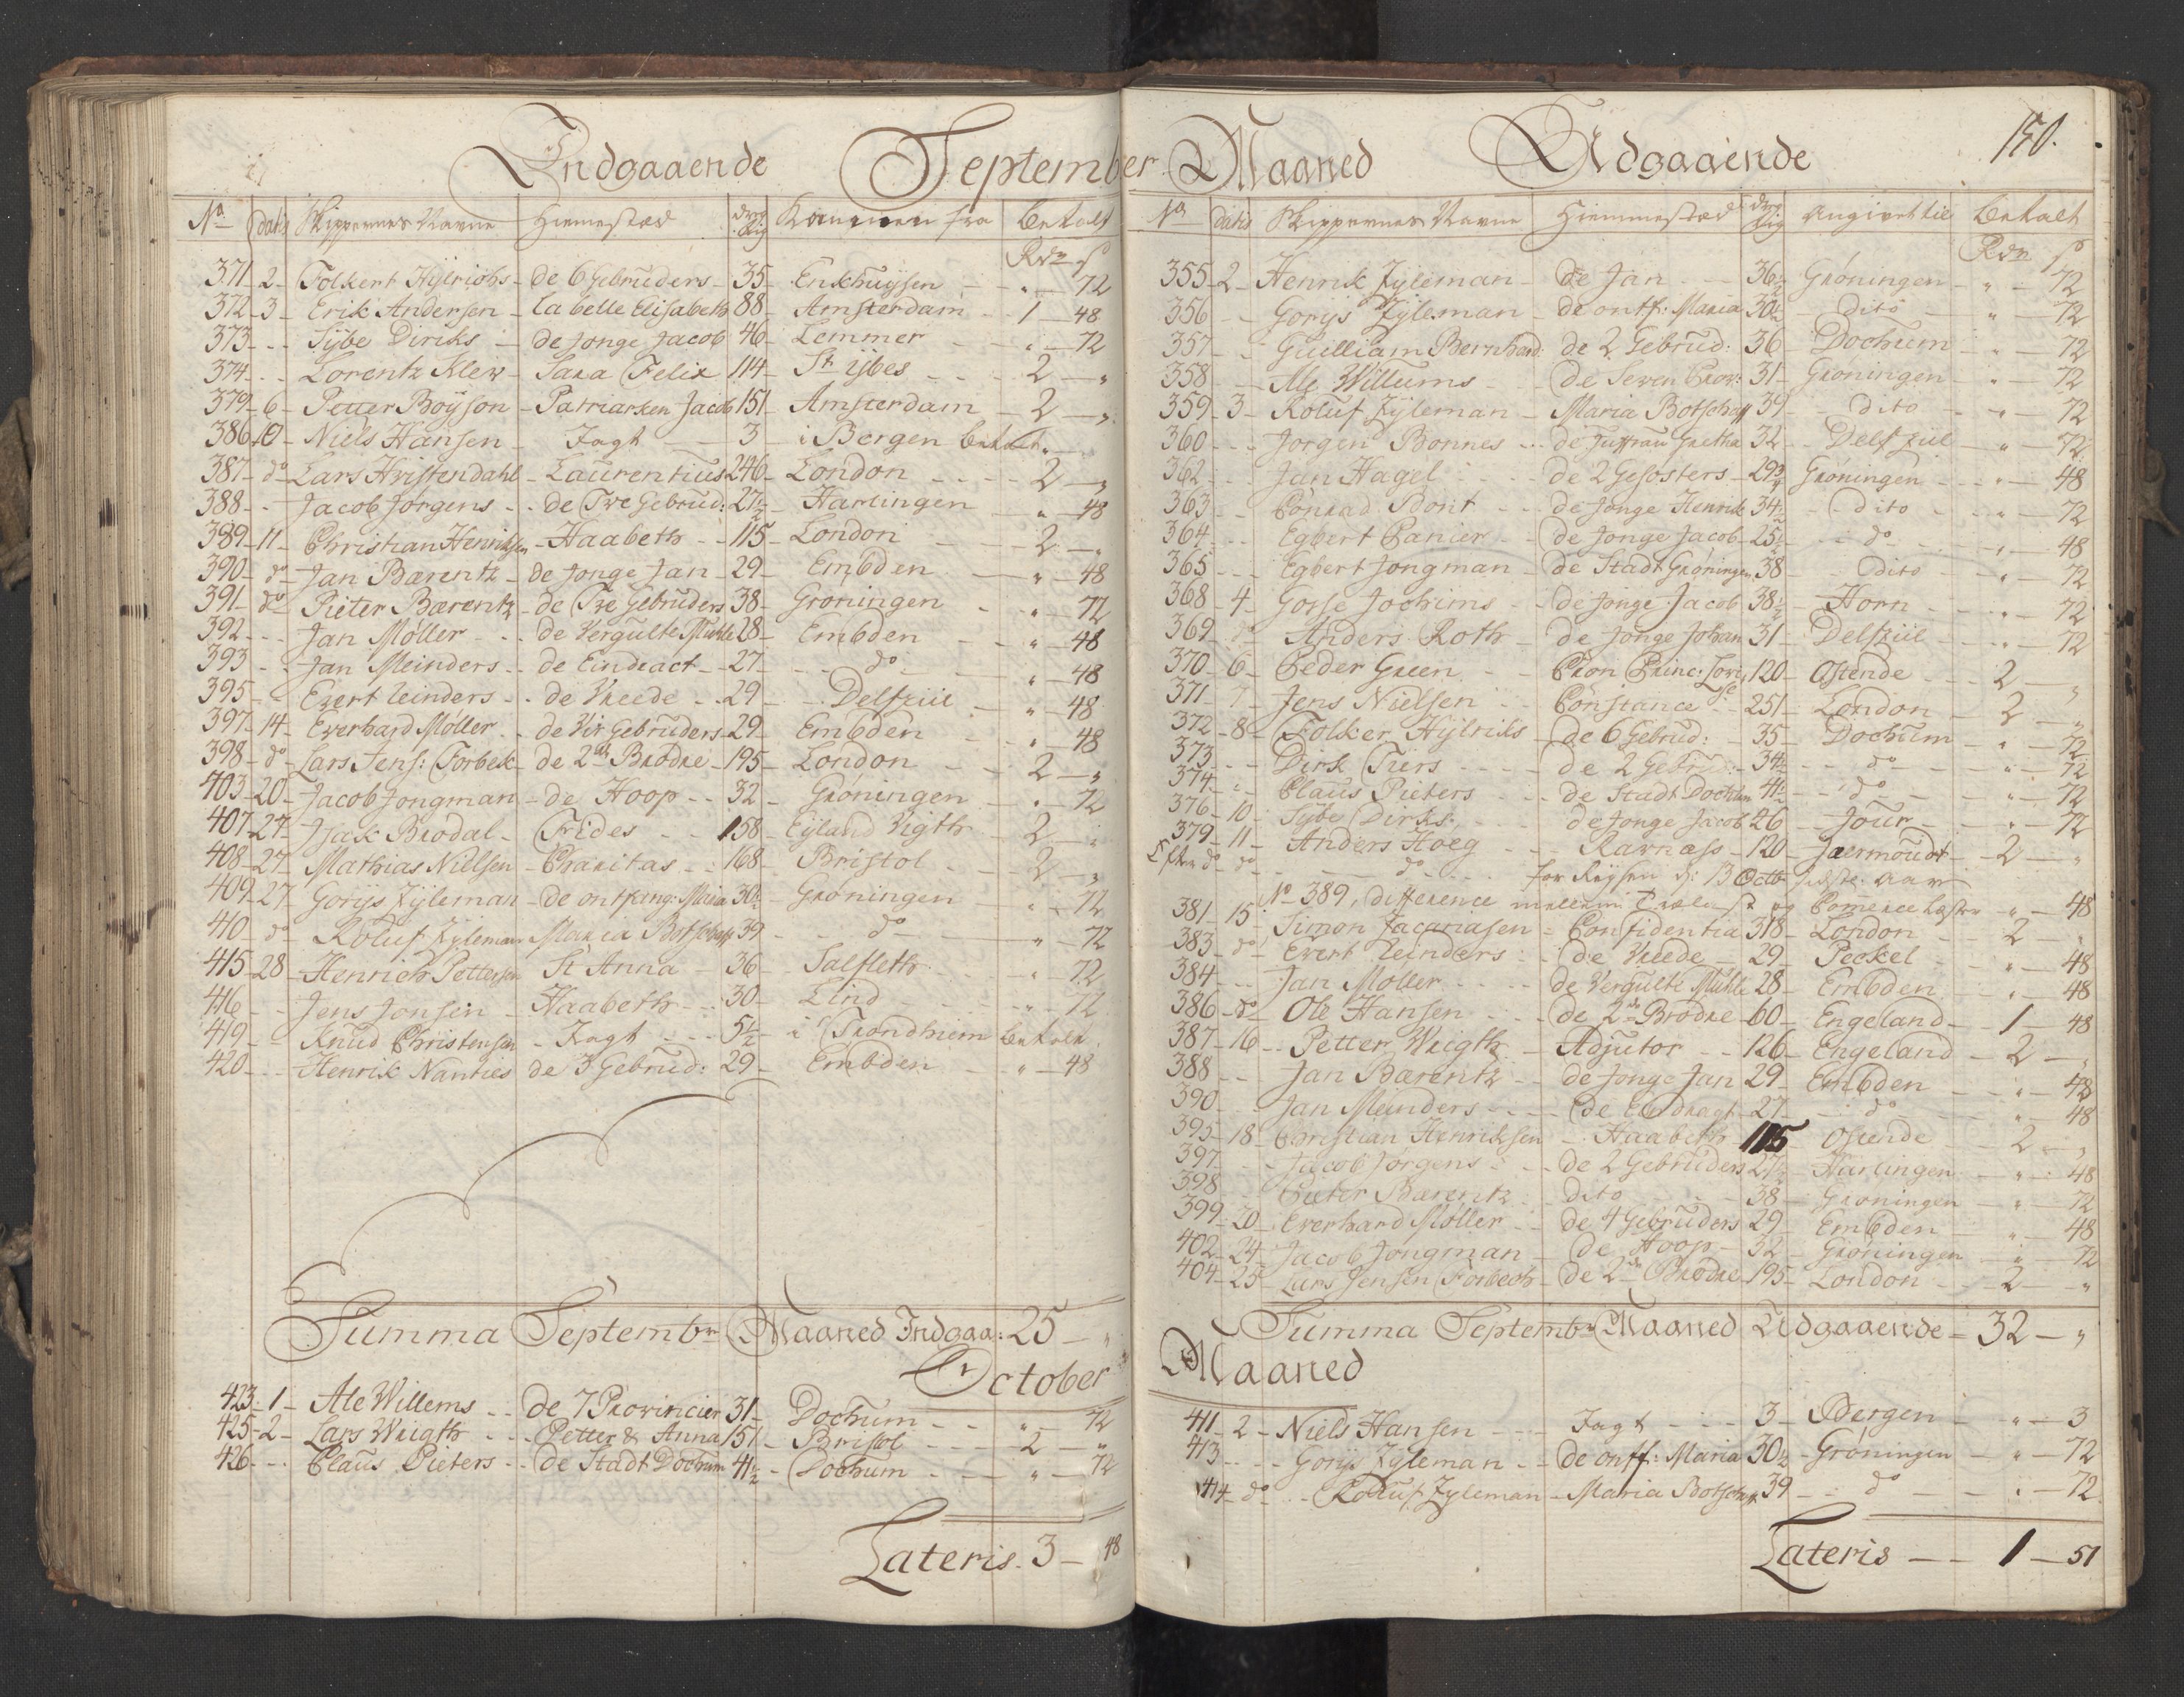 Indgaaende September
No Datis Skippernes Navne Hiemmestæd drægtig Kommen fra betalt
Rdr ß
371 - 2 - Folkert Hylriohs - de 6 Gebruders - 35 - Enkhuysen - " - 72
372 - 3 - Erik Andersen - La belle Elisabeth 88 - Amsterdam - 1 - 48
373 - - - Sybe Diriks - de Jonge Jacob 46 - Lemmer - " - 72
374 - - - Lorentz Klew - Sara Felix 114 - St ybes - 2 - "
379 - 6 - Petter Boyson - Patriarken Jacob 151 - Amsterdam - 2 - "
386 10 - Niels Hansen - Jagt - 3 - i Bergen betalt
387 - do - Lars Hvistendahl - Laurentius 246 - London - 2 - "
388 - - Jacob Jørgens - de Tve Gebrud: 27½ - Harlingen - " - 48
389 - 11 - Christian Henriksen - Haabeth - 115 - London - 2 - "
390 - do - Jan Bærentz - de Jonge Jan - 29 - Embden - " - 48
391 - do - Pieter Bærentz - de Tve Gebruders 38 - Groningen - " - 72
392 - - - Jan Møller - de Vergulte Muhle 28 - Embden - " - 48
393 - - Jan Meinders - de Eindract - 27 - do - " - 48
395 - - Evert leinders - de Vreede - 29 - Delfziil - " - 48
397 - 14 - Everhard Møller - de Vir Gebruders 29 - Embden - " - 48
398 - do - Lars Jens: Torbek - de 2de Brødre - 195 - London - 2 - "
403 - 20 - Jacob Jongman - de Hoop - 32 - Grøningen - " - 72
407 - 27 - Isak Brodal - Frides - 158 - Eyland Vigth - 2 - "
408 - 27 - Mathias Nielsen - Charitas - 168 - Bristol - 2 - "
409 - 27 - Gorys Zyleman - de ontfang: Maria 30½ - Grøningen - " - 72
410 - do - Roluf Zyleman Maria Botschaff 39 - do - " - 72
415 - 28 - Henrich Pettersen St Anna - 36 - Salfleth - " - 72
416 - - Jens Jonsen - Haabeth - 30 - Lind - " - 72
419 - Knud Christensen - Jagt - 5½ - i Trondhiem betalt
420 - - Henrik Nanties de 3 Gebrud: 29 - Embden - " - 48
Summa Septembr Maaned Indgaa: 25 - "
October
423 - 1 - Ale Willems - de 7 Provincier 31 - Dochum - " - 72
425 - 2 - Lars Wrigth - Petter & Anna 151 - Bristol - 2 - "
426 - - Claus Pieters - de Stadt Dochum 41½ - Dochum - " - 72
Lateris. 3 - 48
Maaned Udgaaende 150.
No Datis Skippernes Navne Hiemmestæd drægtig Angivet til betalt
Rdr ß
355 - 2 - Henrik Zyleman - de Jan - 36½ Grøningen - " - 72
356 - - Gorys Zyleman - de ontf: Maria 30½ - dito - " - 72
357 - - Guilliam Bernhard: de 2 Gebrud: 36 - Dochum - " - 72
358 - - Ale Willums - de Seven Prov: 31 - Grøningen - " - 72
359 - 3 - Roluf Zyleman - Maria Botschaff 39 - dito - " - 72
360 - - - Jorgen Bonnes - de Juffrau Gretha 32 - Delfziil - " - 72
362 - - Jan Hagel - de 2 Gesosters - 29¾ Grøningen - " - 48
363 - - Conrad Bont - de Jonge Henrik 34½ - dito - " - 72
364 - - Egbert Panier - de Jonge Jacob - 25½ - do - " - 48
365 - - - Egbert Jongman - de Stadt Grøningen 38 - dito - " - 72
368 - 4 - Gosse Jochims - de Jonge Jacob 38½ - Horn - " - 72
369 - do - Anders Roth - de Jonge Johan 31 - Delfziil - " - 72
370 - 6 - Peder Green - Cron Princ: Lovise 120 - Ostende - 2 - "
371 - 7 - Jens Nielsen - Constance - 251 - London - 2 - "
372 - 8 - Folker Hylriks - de 6 Gebrud: - 35 - Dochum - " - 72
373 - - Dirk Tiers - de 2 Gebrud: - 34½ - do - " - 72
374 - - Claus Pieters - de Stadt Dochum 41½ - do - " - 72
376 - 10 - Sybe Dirks: - de Jonge Jacob 46 - Jour - " - 72
379 - 11 - Anders Hoeg - Ravnæss - 120 - Jaermoudt - 2 - "
Efter do do - do - for Reysen d: 13 Octb: sidste aar
No 389, difference mellem Trælast og Comerce Læster - " - 48
381 - 15 - Simon Zacariasen - Confidentia 318 - London - 2 - "
383 - do - Evert leinders - de Vreede - 29 - Peckel - " - 48
384 - - Jan Møller - de Vergulte Muhle 28 - Embden - " - 48
386 - do - Ole Hansen - de 2de Brødre - 60 - Engeland - 1 - 48
387 - 16 - Petter Wrigth - Adjutor - 126 - Engeland - 2 - "
388 - - Jan Bærentz - de Jonge Jan 29 - Embden - " - 48
390 - - Jan Meinders - de Eindragt - 27 - do - " - 48
395 - 18 - Christian Henriksen - Haabeth - 115 Ostende - 2 - "
397 - - Jacob Jørgens - de 2 Gebruders 27½ - Harlingen - " - 48
398 - - Pieter Bærentz - dito - 38 - Groningen - " - 72
399 - 20 - Everhard Møller - de 4 Gebruders 29 - Embden - " - 48
402 - 24 - Jacob Jongman - de Hoop - 32 - Grøningen - " - 72
404 - 25 - Lars Jensen Torbech - de 2de Brødre - 195 - London - 2 - "
Summa Septembr Maaned Udgaaende - 32 - "
Maaned
411 - 2 - Niels Hansen - Jagt - 3 - Bergen - " - 3
413 - - Gorys Zyleman - de onff: Maria 30½ - Grøningen - " - 72
414 - do - Roluf Zyleman - Maria Botschaff 39 - do - " - 72
Lateris - 1 - 51